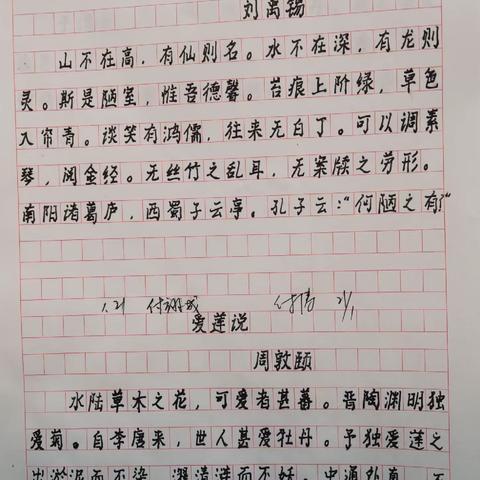 刘禹锡
山不在高，有仙则名。水不在深，有龙则
灵。斯是陋室，惟吾德馨。苔痕上阶绿，草色
入帘青。谈笑有鸿儒，往来无白丁。可以调素
琴，阅金经。无丝竹之乱耳，无案牍之劳形。
南阳诸葛庐，西蜀子云亭。孔子云：“何陋之有？”
1.21
爱莲说
周敦颐
水陆草木之花，可爱者甚蕃。晋陶渊明独
爱菊。自李唐来，世人甚爱牡丹。予独爱莲之
出淤泥而不染，濯清涟而不妖。中通外直，不